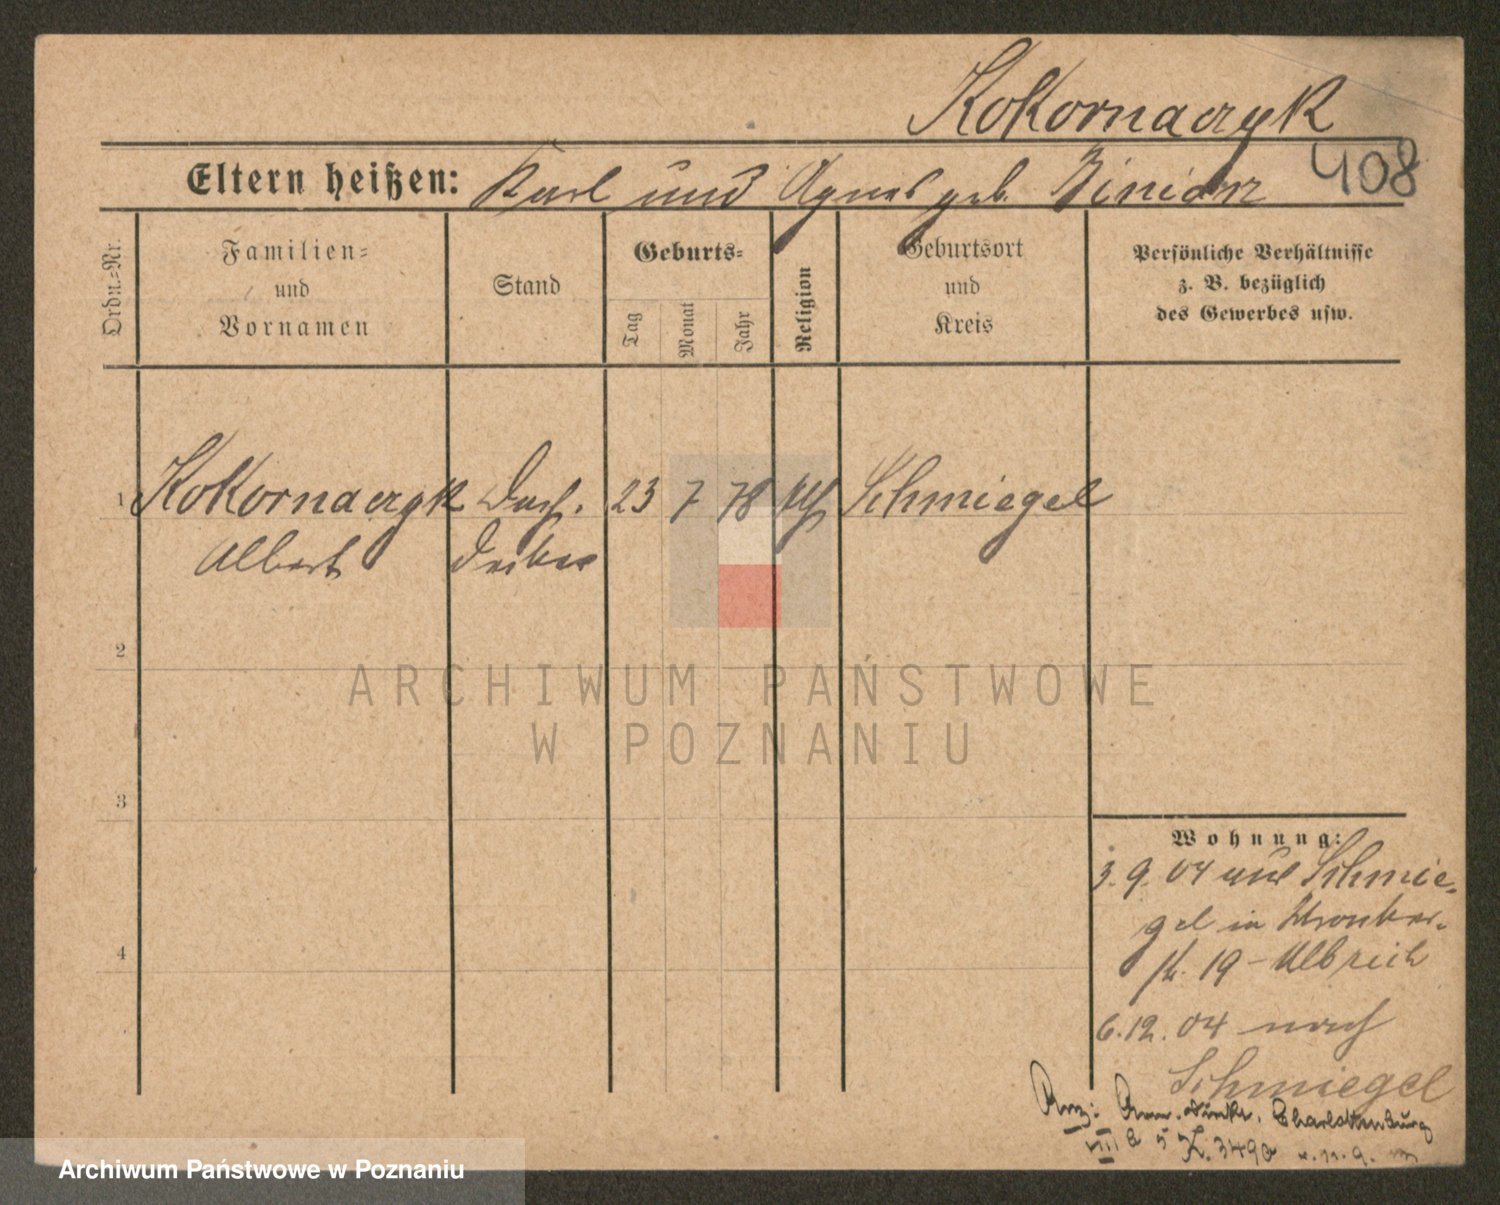 Kokornaczyk
408
Eltern heißen: Karl und Agnes geb. Biniarz
Ordn.-Nr.
Familien-
und
Vornamen
Stand
Geburts-
Tag
Monat
Jahr
Religion
Geburtsort
und
Kreis
Persönliche Verhältnisse
z. B. bezüglich
des Gewerbes usw.
1 Kokornaczyk Dach. 23 7 78 kth Schmiegel
Albert decker
2
3
4
ARCHIWUM PAŃSTWOWE
W POZNANIU
Wohnung:
3.9.04 aus Schmie-
gel in Kronker-
str. 19 - Albrich
6.12.04 nach
Schmiegel
Charlottenburg
VIII a 5 3490 11.9.
Archiwum Państwowe w Poznaniu